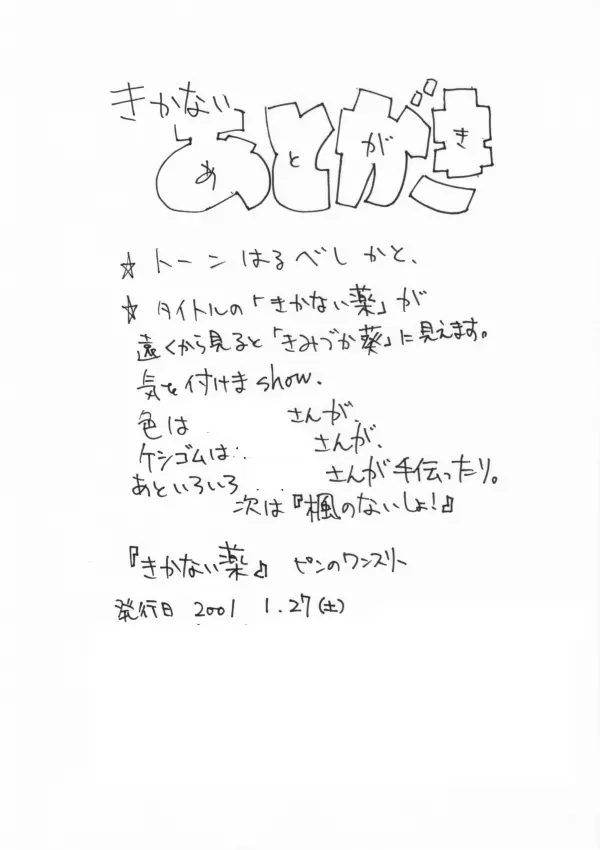 きかない
あとがき
あとがき
☆ トーンはるべしかと、
☆ タイトルの「きかない薬」が
遠くから見ると「きみづか葵」に見えます。
気を付けまshow.
色は さんが、
ケシゴムは さんが、
あといろいろ さんが手伝ったり。
次は『楓のないしょ!』
『きかない薬』 ピンのワンスリー
発行日 2001 1.27(土)